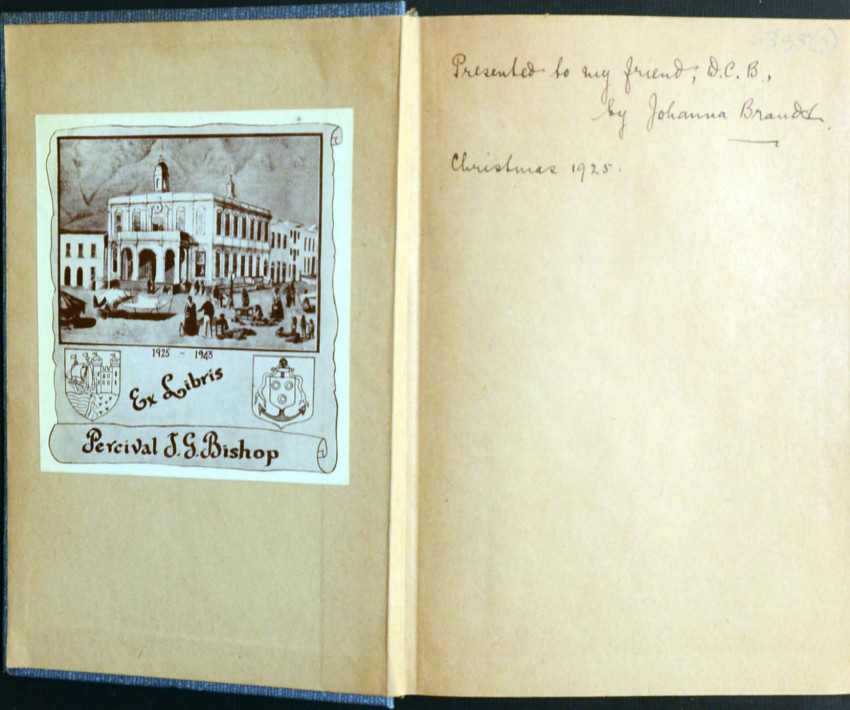 1925 ~ 1943
Ex Libris
Percival J. G. Bishop
Presented to my friend, D. C. B.,
by Johanna Brandt.
Christmas 1925.